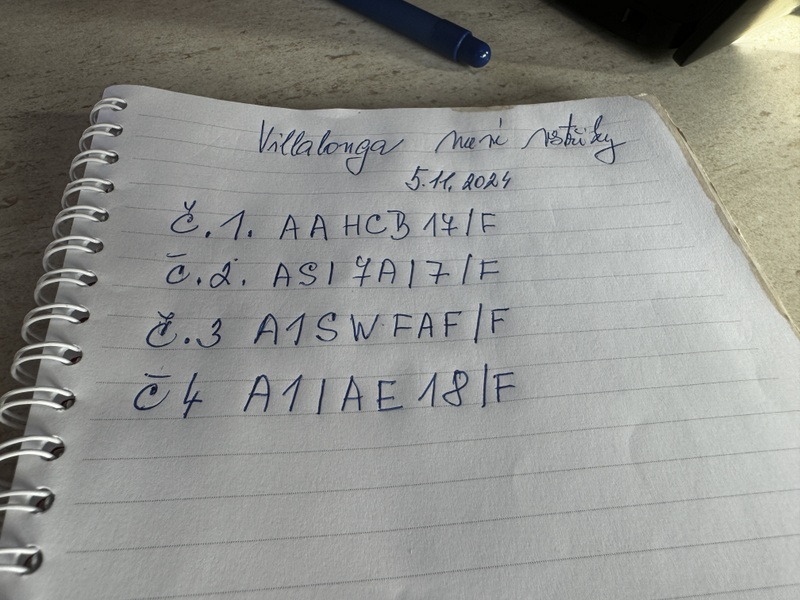 Villalonga nové vstřiky
5.11.2024
č.1. AAHCB17/F
č.2. ASI7A17/F
č.3 A1SWFAF/F
č4 A1IAE18/F